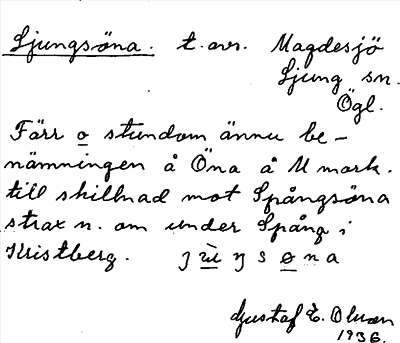 Ljungsöna. t. avs. Magdesjö
Ljung sn.
Ögl.
Förr o stundom ännu be-
nämningen å Öna å Umark.
till skillnad mot Spångsöna
strax n. om under Spång i
Kristberg. j ù ŋ s ø n a
Gustaf E. Olsson
1936.